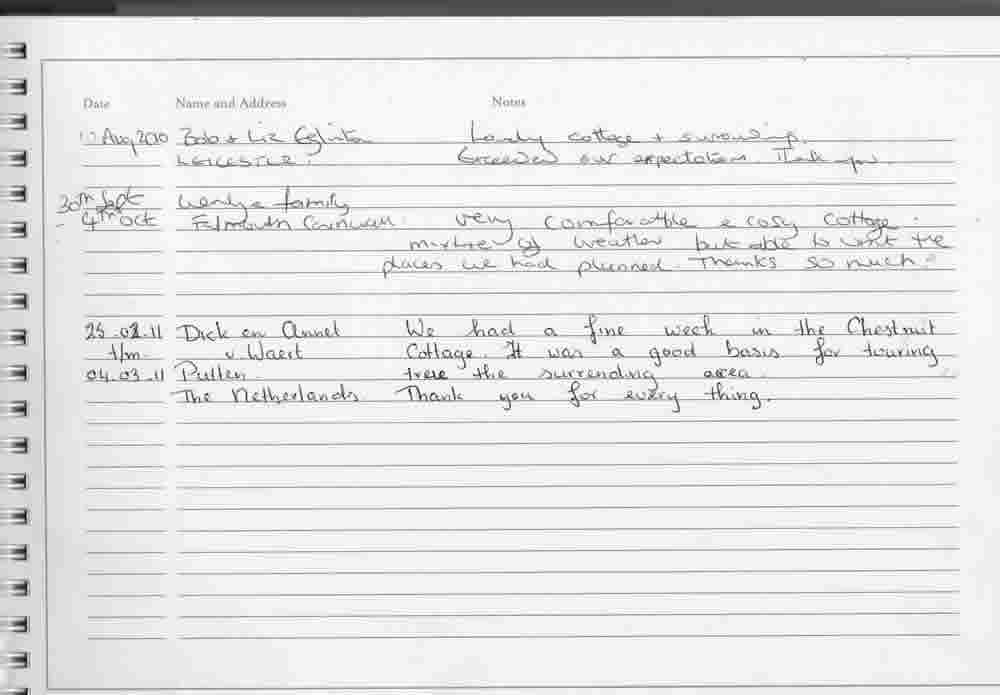 Date Name and Address Notes
Aug 2010 Bob + Liz Eglinton Lovely cottage + surroundings.
LEICESTER. Exceeded our expectations. Thank you.
30th Sept Wendy & family
- 4th Oct Falmouth Cornwall. very comfortable & cosy cottage.
mixture of weather but able to visit the
places we had planned. Thanks so much.
25.02.11 Dick en Annet We had a fine week in the Chestnut
t/m v. Waert Cottage. It was a good basis for touring
04.03.11 Putten. the surrending area.
The Netherlands Thank you for every thing.